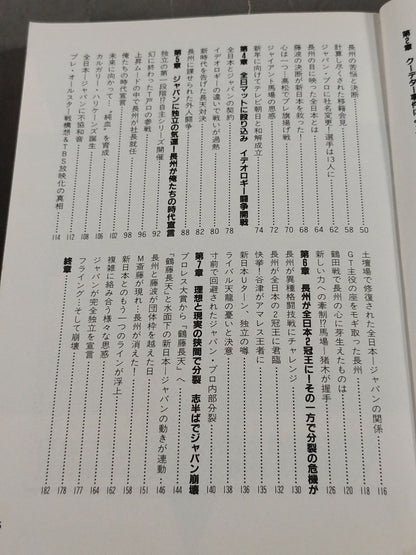 クーデター
長州の苦悩と決断……50
計算し尽くされた移籍会見……58
長州の目に映った全日本とは……60
ジャパン・プロに社名変更 選手は13人に……62
藤波の決断が新日本を救った!……64
心は一つ!高松でプレ旗揚げ戦……68
ジャイアント馬場の思惑……70
新年に向けてテレビ朝日と和解成立……74
第4章 全日マットに殴り込み イデオロギー闘争開戦
全日本とジャパンの契約……78
イデオロギーの違いで戦いが過熱……80
新時代を告げた長天対決……82
長州に課せられた外人闘争……88
第5章 ジャパンに独立の気運!長州が俺たちの時代宣言
独立の第一段階!?自主シリーズ開催……92
幻に終わったT戸口の参戦……96
上昇ムードの中で長州が社長就任……98
俺たちの時代宣言……102
未来に向かって…“純血”を育成……106
カルガリー・ハリケーンズ誕生……108
全日本ージャパンに不協和音……112
プレ・オールスター戦構想&TBS放映化の真相……114
土壇場で修復された全日本ージャパンの関係……116
GT主役の座をモギ取った長州……118
新しい力への牽制!?馬場ー猪木が握手……120
鶴田戦で長州の心に芽生えたものは……126
第6章 長州が全日本2冠王に!その一方で分裂の危機が
長州が異種格闘技戦にチャレンジ……130
長州が全日本の2冠王に君臨……132
快挙!谷津がアマレス王者に……135
新日本Uターン、独立の噂……136
ライバル天龍の憂いと決意……138
寸前で回避されたジャパン・プロ内部分裂……140
第7章 理想と現実の狭間で分裂 志半ばでジャパン崩壊
プロレス大賞から「鶴藤長天」へ……144
「鶴藤長天」と水面下の新日本ージャパンの動きが連動……146
長州と藤波が団体枠を越えた日……151
M斎藤が現れ!長州が消えた!……158
新日本とのもう一つのラインが浮上……162
複雑に絡み合う様々な思惑……164
ジャパンが完全独立を宣言……177
フライング、そして崩壊……178
終章……182